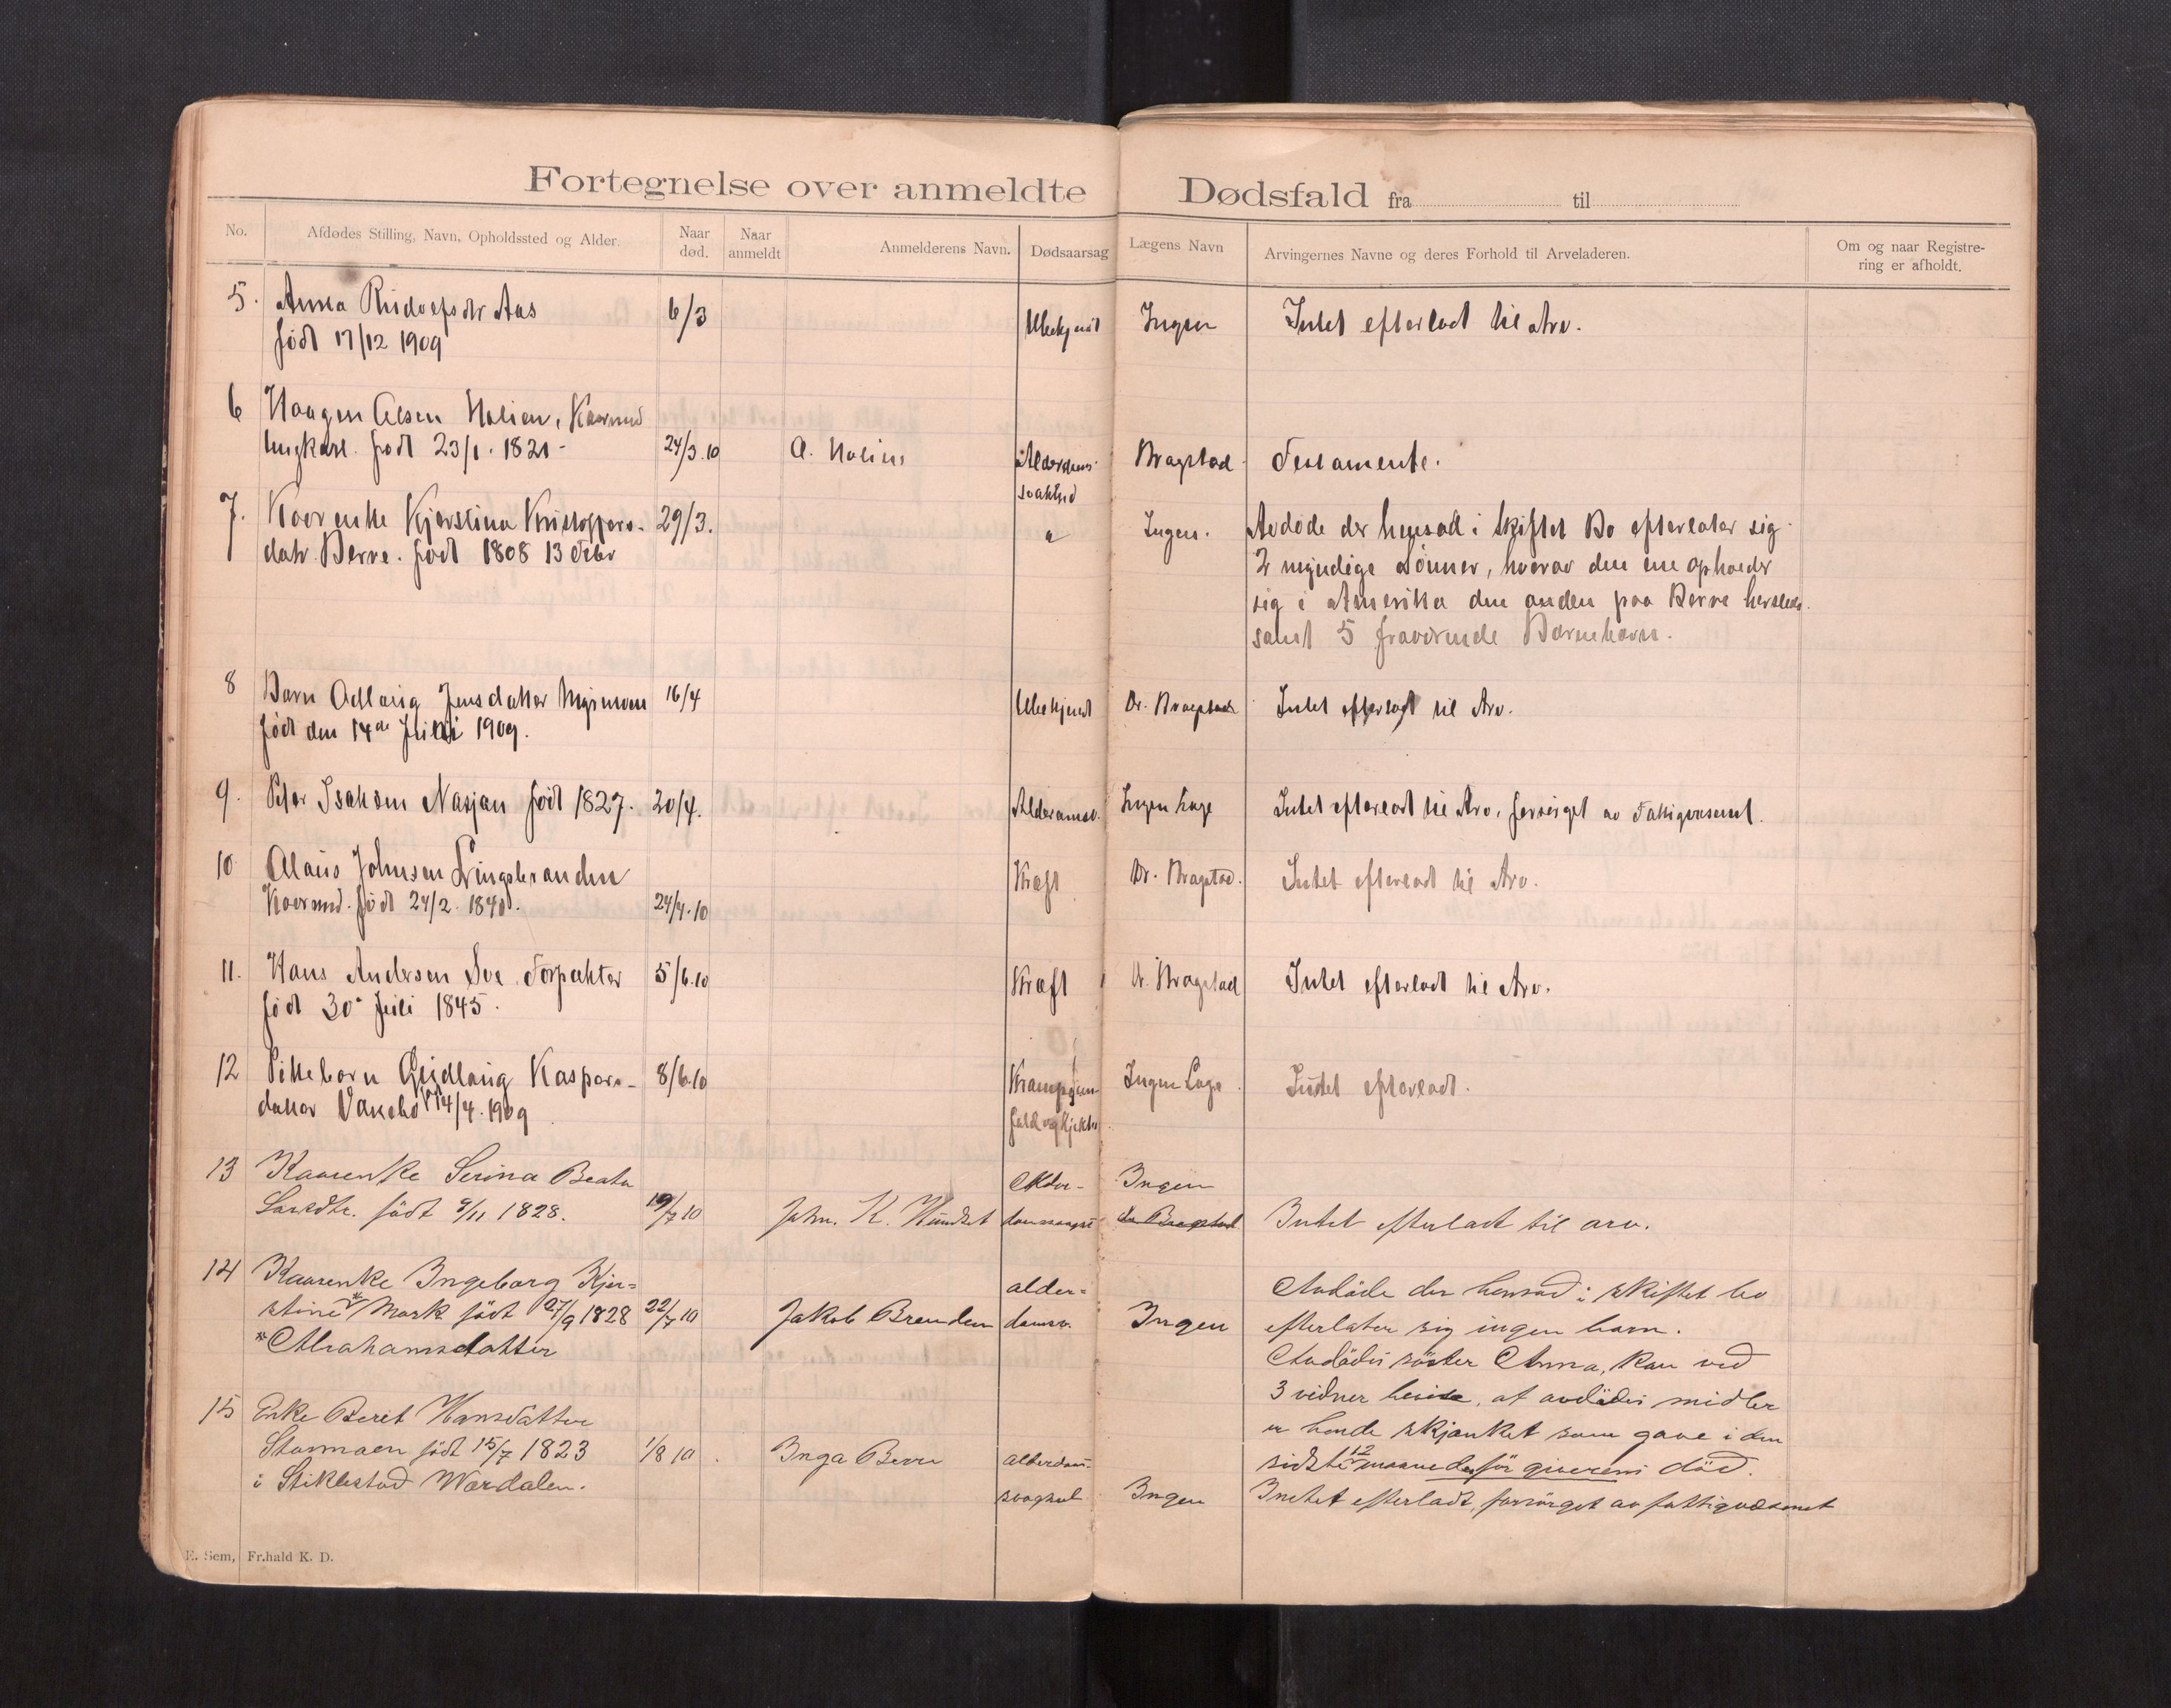 Fortegnelse over anmeldte Dødsfald fra til
No.
Afdødes Stilling, Navn, Opholdssted og Alder.
Naar død.
Naar anmeldt
Anmelderens Navn.
Dødsaarsag
Lægens Navn
Arvingernes Navne og deres Forhold til Arveladeren.
Om og naar Registre-
ring er afholdt.
5. Anna Rudolfsdtr Aas 6/3 Ubekjendt Ingen Intet efterladt til Arv.
født 17/12 1909
6 Haagen Olsen Holien, Kaarmd
Ungkarl. født 23/1. 1821 - 24/3.10 O. Holien Alderdoms- Bragstad Testamente.
svakhed
7. Kaarenke Kjerstina Kristoffers- 29/3. Ingen. Avdøde der hensad i skiftet Bo efterlater sig
datr. Berre. født 1808 13 Febr 2 myndige Sønner, hvorav den ene opholder
sig i Amerika den anden paa Berre hersteds.
samt 5 fraværende Børnebørn.
8 Barn Odlaug Jensdatter 16/4 Ubekjendt Dr. Bragstad Intet efterladt til Arv.
født den 14de Juli 1909.
9. Peter Isaksen født 1827. 20/4. Alderdomsv. Ingen Læge Intet efterladt til Arv, forsørget av Fattigvæsenet.
10 Olaus Johnsen Kræft Dr. Bragstad. Intet efterladt til Arv.
Kaarmd. født 24/2. 1840. 24/4.10
11. Hans Andersen Sve Forpakter 5/6.10 Kræft Dr. Bragstad Intet efterladt til Arv.
født 30 Juli 1845.
12 Pikebarn Gudlaug Kaspers- 8/6.10 Ingen Læge. Intet efterladt.
datter 14/4.1909
13 Kaarenke Serina Beata Alder- Ingen
Larsdtr. født 9/11 1828. 19/7 10 John. K. Hundset dr Bragstad Intet efterladt til arv.
14 Kaarenke Ingeborg Kjer- alder= Avdøde der hensad i skiftet bo
stine* Mork født 27/9 1828 22/7 10 Jakob Branden domsv. Ingen efterlater sig ingen barn.
*Abrahamsdatter Avdødes søster Anna, kan ved
3 vidner bevise, at avdødes midler
er hende skjænket som gave i den
sidste 12 maaneder før giverens död.
15 Enke Beret Hansdatter
Stormoen født 15/7 1823 1/8 10. Inga Berre alderdom-
i Stiklestad Værdalen. svaghet Ingen Intet efterladt, forsørget av fattigvæsenet
E. Sem, Fr.hald K. D.